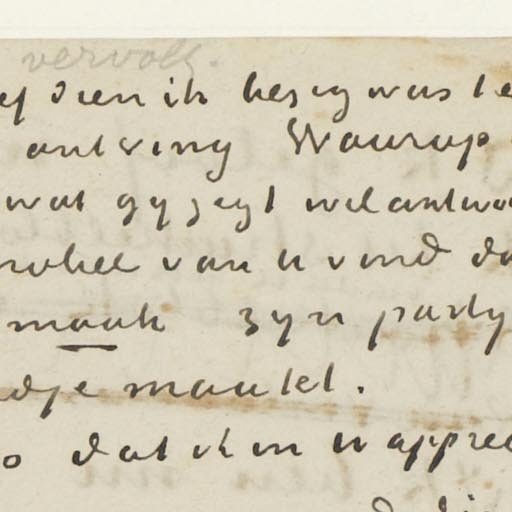 vervolg.
dien ik bezig was te
ontving Waarop
wat gy zegt wel antwo
nobel van u vind da
maak zyn party
dje maakt.
dat ik in u appree